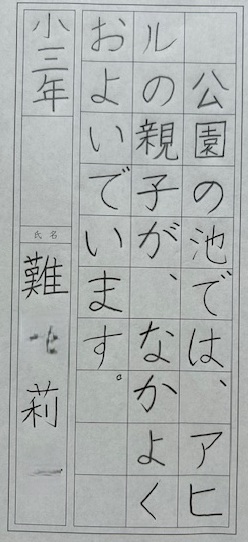 公園の池では、アヒ
ルの親子が、なかよく
およいでいます。
小三年
氏名
難 莉